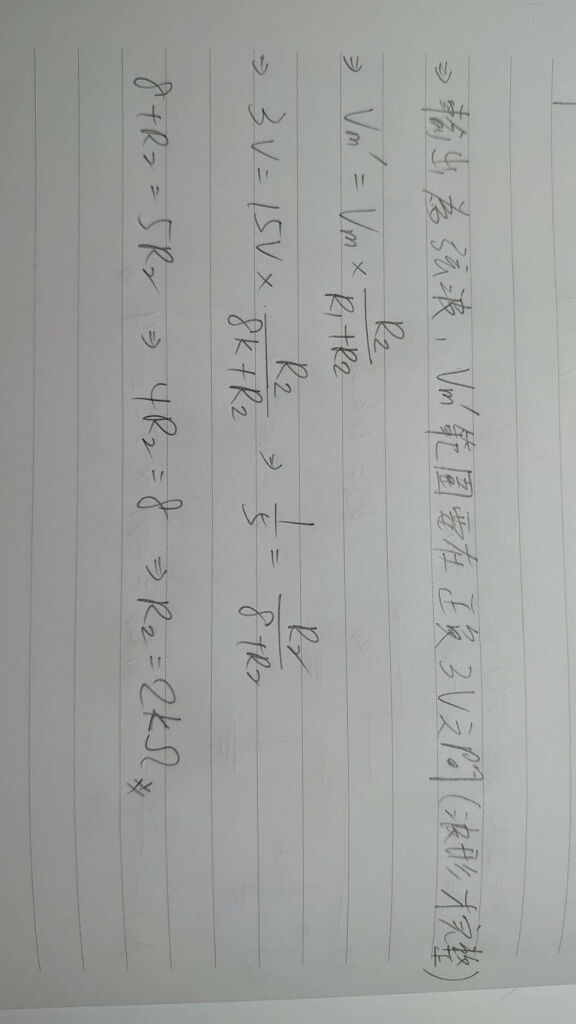 ⇒ 輸出為弦波，Vm'範圍需在正負3V之間(波形才完整)
⇒ Vm' = Vm × R2/(R1+R2)
⇒ 3V = 15V × R2/(8k+R2) ⇒ 1/5 = R2/(8+R2)
8+R2 = 5R2 ⇒ 4R2 = 8 ⇒ R2 = 2kΩ ※